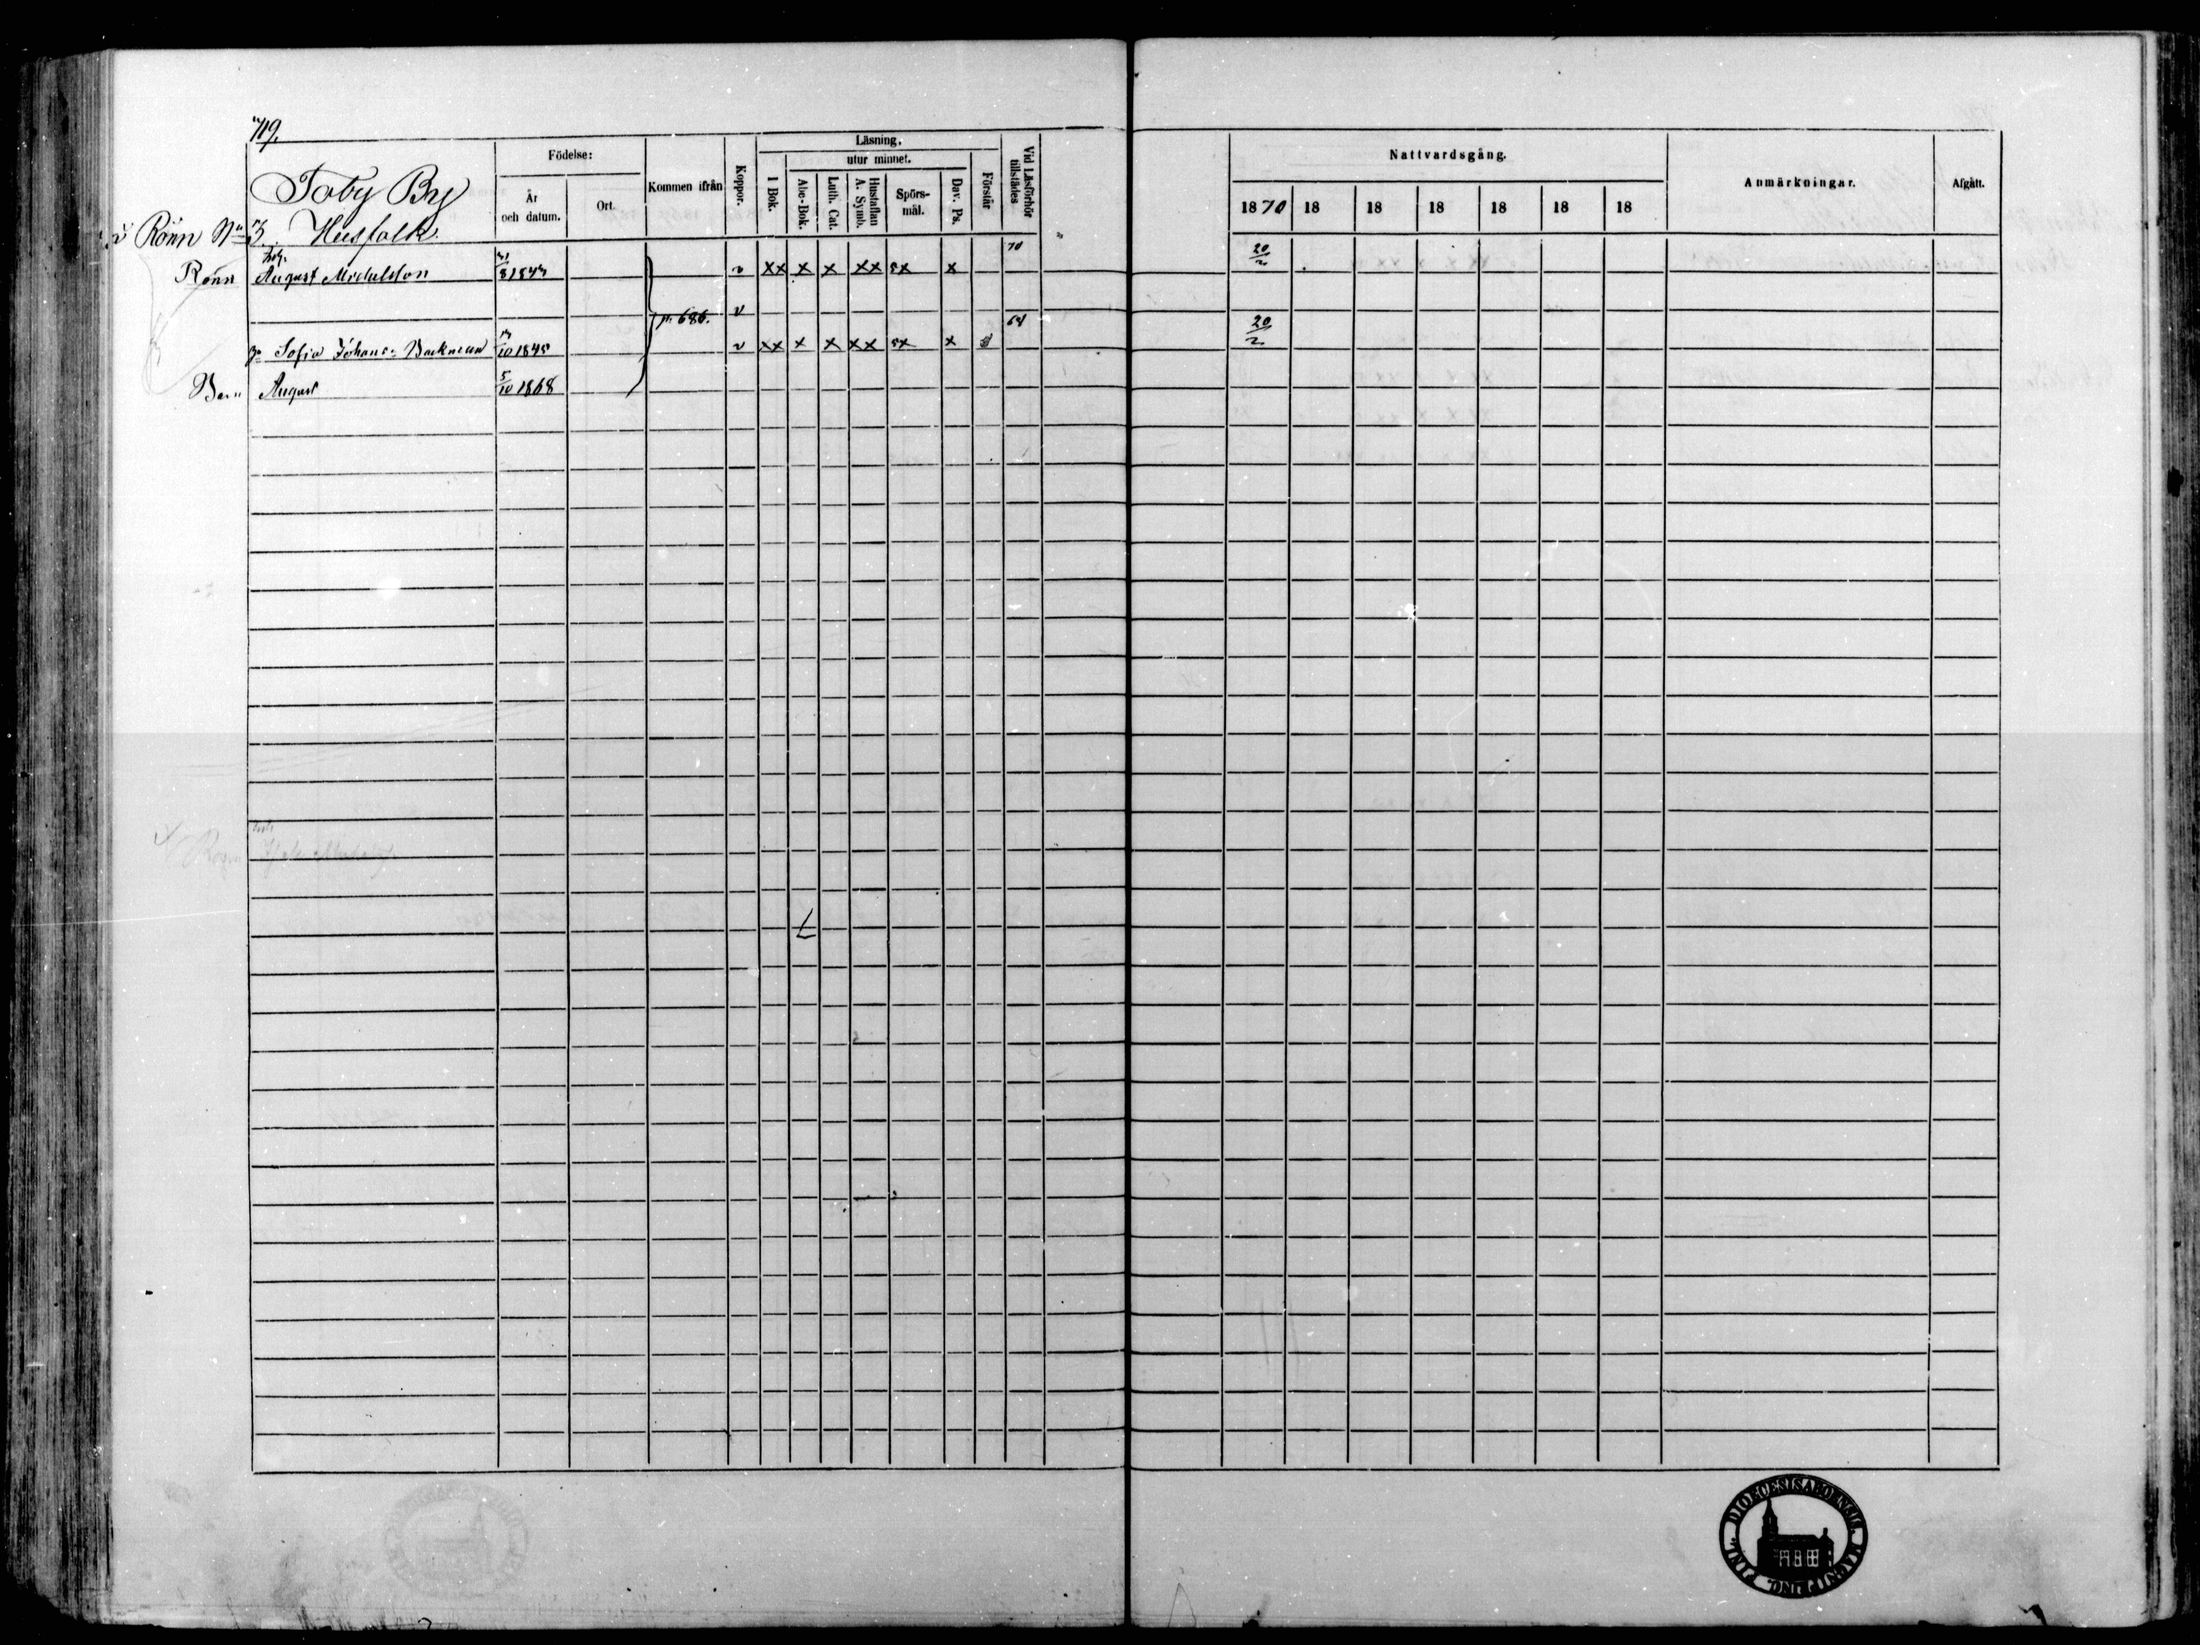 719.
Toby By
Rönn No 3. Husfolk.
Födelse:
År och datum.
Ort.
Kommen ifrån
Koppor.
Läsning,
utur minnet.
I Bok.
Abc-Bok.
Luth. Cat.
Hustaflan A. Symb.
Spörs-mål.
Dav. Ps.
Förstår
Vid Läsförhör tillstädes
Nattvardsgång.
1870 18 18 18 18 18 18
Anmärkningar.
Afgått.
70
Rönn August Michelsson 31/8 1843 v xx x x xx sx x 20/2
p. 686. v
64
Sofia Johans: Backman 10 1845 v xx x x xx sx x 20/2
Barn August 5/10 1868
DIOECESIS ABOENSIS. MAGNI PRINC. FINL.